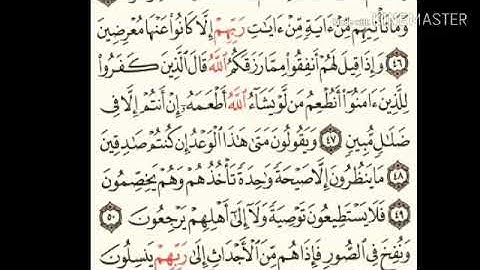 KINEMASTER
وَمَا تَأْتِيهِم مِّنْ ءَايَةٍ مِّنْ ءَايَٰتِ رَبِّهِمْ إِلَّا كَانُوا۟ عَنْهَا مُعْرِضِينَ
٤٦ وَإِذَا قِيلَ لَهُمْ أَنفِقُوا۟ مِمَّا رَزَقَكُمُ ٱللَّهُ قَالَ ٱلَّذِينَ كَفَرُوا۟
لِلَّذِينَ ءَامَنُوٓا۟ أَنُطْعِمُ مَن لَّوْ يَشَآءُ ٱللَّهُ أَطْعَمَهُۥٓ إِنْ أَنتُمْ إِلَّا فِى
ضَلَٰلٍ مُّبِينٍ ٤٧ وَيَقُولُونَ مَتَىٰ هَٰذَا ٱلْوَعْدُ إِن كُنتُمْ صَٰدِقِينَ
٤٨ مَا يَنظُرُونَ إِلَّا صَيْحَةً وَٰحِدَةً تَأْخُذُهُمْ وَهُمْ يَخِصِّمُونَ
٤٩ فَلَا يَسْتَطِيعُونَ تَوْصِيَةً وَلَآ إِلَىٰٓ أَهْلِهِمْ يَرْجِعُونَ ٥٠
وَنُفِخَ فِى ٱلصُّورِ فَإِذَا هُم مِّنَ ٱلْأَجْدَاثِ إِلَىٰ رَبِّهِمْ يَنسِلُونَ